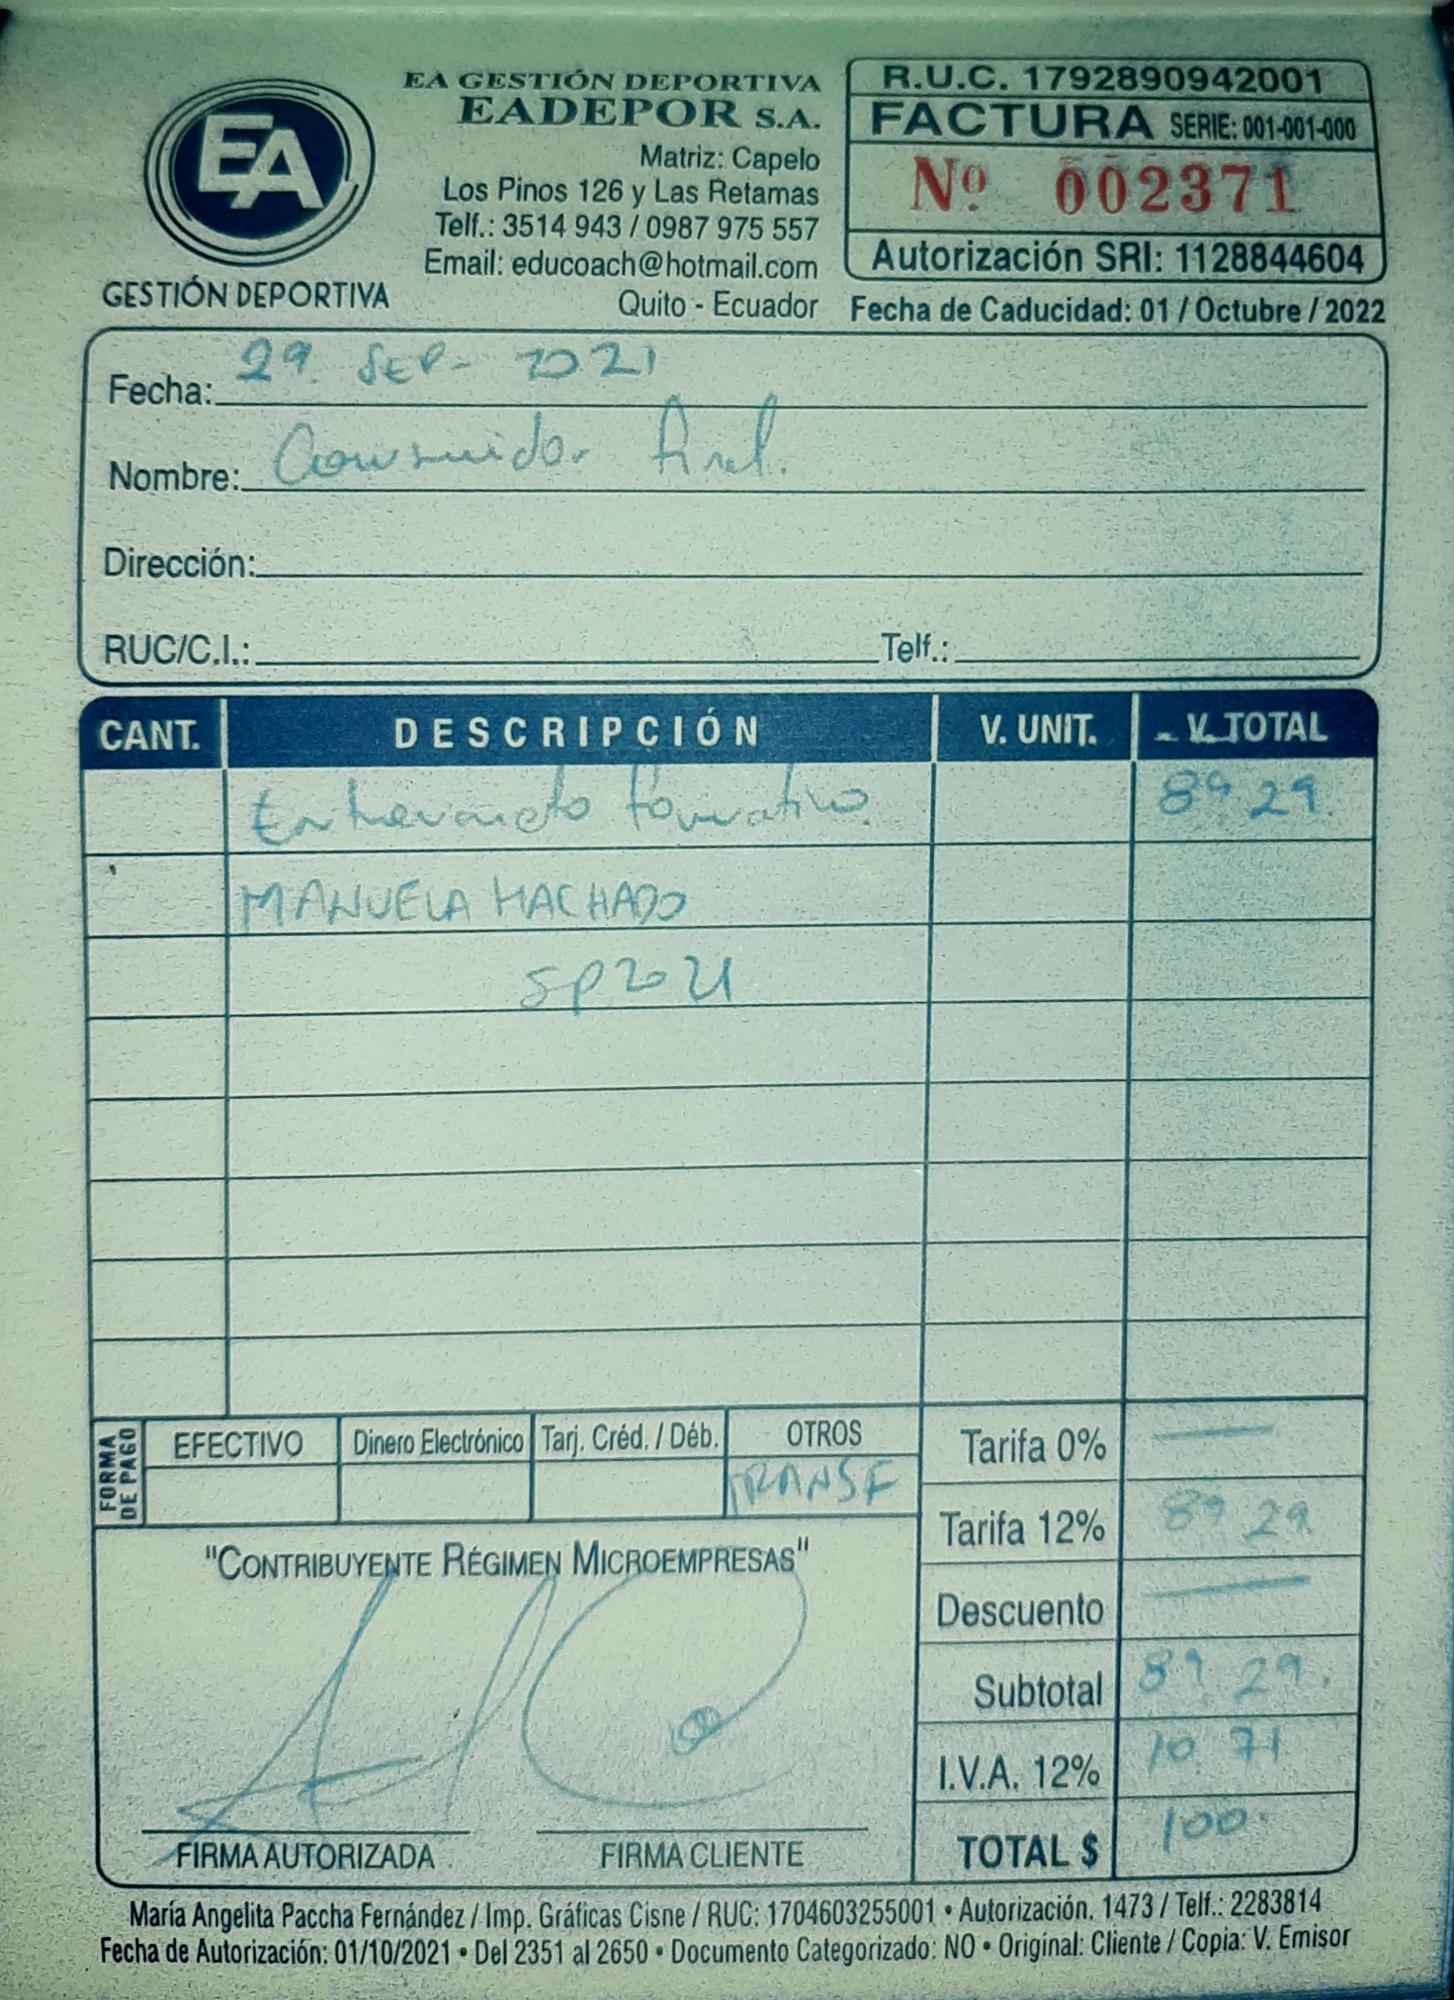 EA
GESTIÓN DEPORTIVA
EA GESTIÓN DEPORTIVA
EADEPOR S.A.
Matriz: Capelo
Los Pinos 126 y Las Retamas
Telf.: 3514 943 / 0987 975 557
Email: educoach@hotmail.com
Quito - Ecuador
R.U.C. 1792890942001
FACTURA SERIE: 001-001-000
Nº 002371
Autorización SRI: 1128844604
Fecha de Caducidad: 01 / Octubre / 2022
Fecha: 29. SEP- 2021
Nombre: Consumidor final.
Dirección:
RUC/C.I.: Telf.:
CANT. DESCRIPCIÓN V. UNIT. V. TOTAL
formativo. 89 29
MANUELA MACHADO
SP2021
FORMA DE PAGO
EFECTIVO Dinero Electrónico Tarj. Créd. / Déb. OTROS
TRANSF
Tarifa 0% —
Tarifa 12% 89 29
Descuento —
Subtotal 89 29.
I.V.A. 12% 10 71
TOTAL $ 100.
"CONTRIBUYENTE RÉGIMEN MICROEMPRESAS"
FIRMA AUTORIZADA FIRMA CLIENTE
María Angelita Paccha Fernández / Imp. Gráficas Cisne / RUC: 1704603255001 • Autorización. 1473 / Telf.: 2283814
Fecha de Autorización: 01/10/2021 • Del 2351 al 2650 • Documento Categorizado: NO • Original: Cliente / Copia: V. Emisor